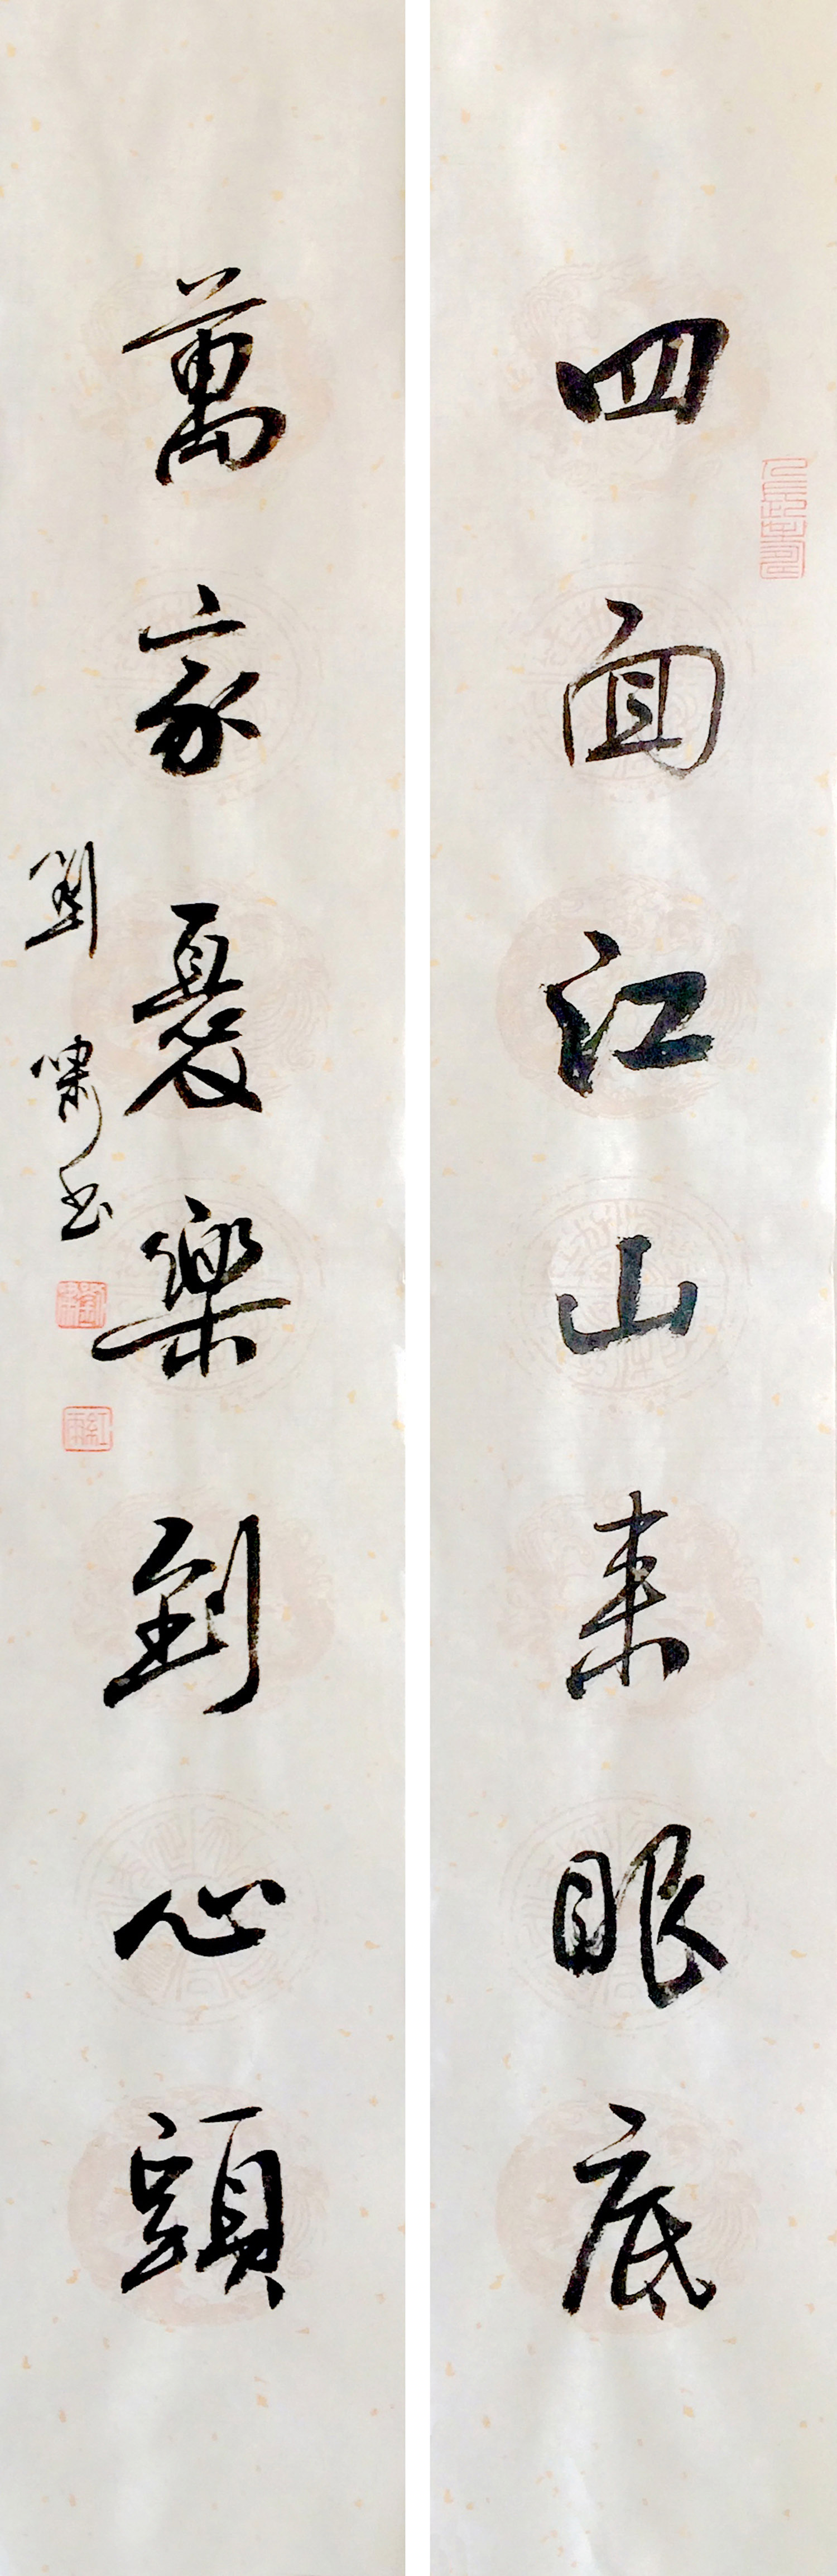 四面江山来眼底
萬家憂樂到心頭
劉嘯書
紅雨